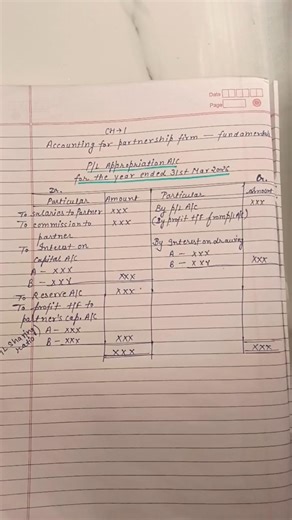 Date
Page
CH→1
Accounting for partnership firm — fundamentals
P/L Appropriation A/C
for the year ended 31st Mar 2025
Dr. Cr.
Particular Amount Particular Amount
To salaries to partner xxx By P/L A/C xxx
To commission to partner xxx (By profit t/f from P/L A/C)
To Interest on capital A/C By Interest on drawing
A - xxx A - xxx
B - xxx xxx B - xxx xxx
To Reserve A/C xxx
To profit t/f to
partner's cap. A/C
A - xxx
B - xxx xxx
xxx xxx